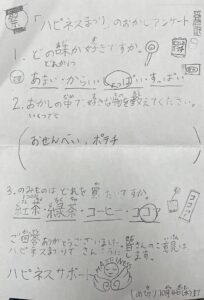 「ハピネスまつり」のおかしアンケート
1. どの味が好きですか。
あまい・からい・しょっぱい・すっぱい
2. おかしの中で好きな物を教えてください。
いくつでも
おせんべい、ポテチ
3. のみものはどれを買いたいですか。
紅茶・緑茶・コーヒー・ココア
ご回答ありがとうございました。皆さんのご意見は
ハピネスまつりで さん
します。
ハピネスサポート
HAPPINESS
10月